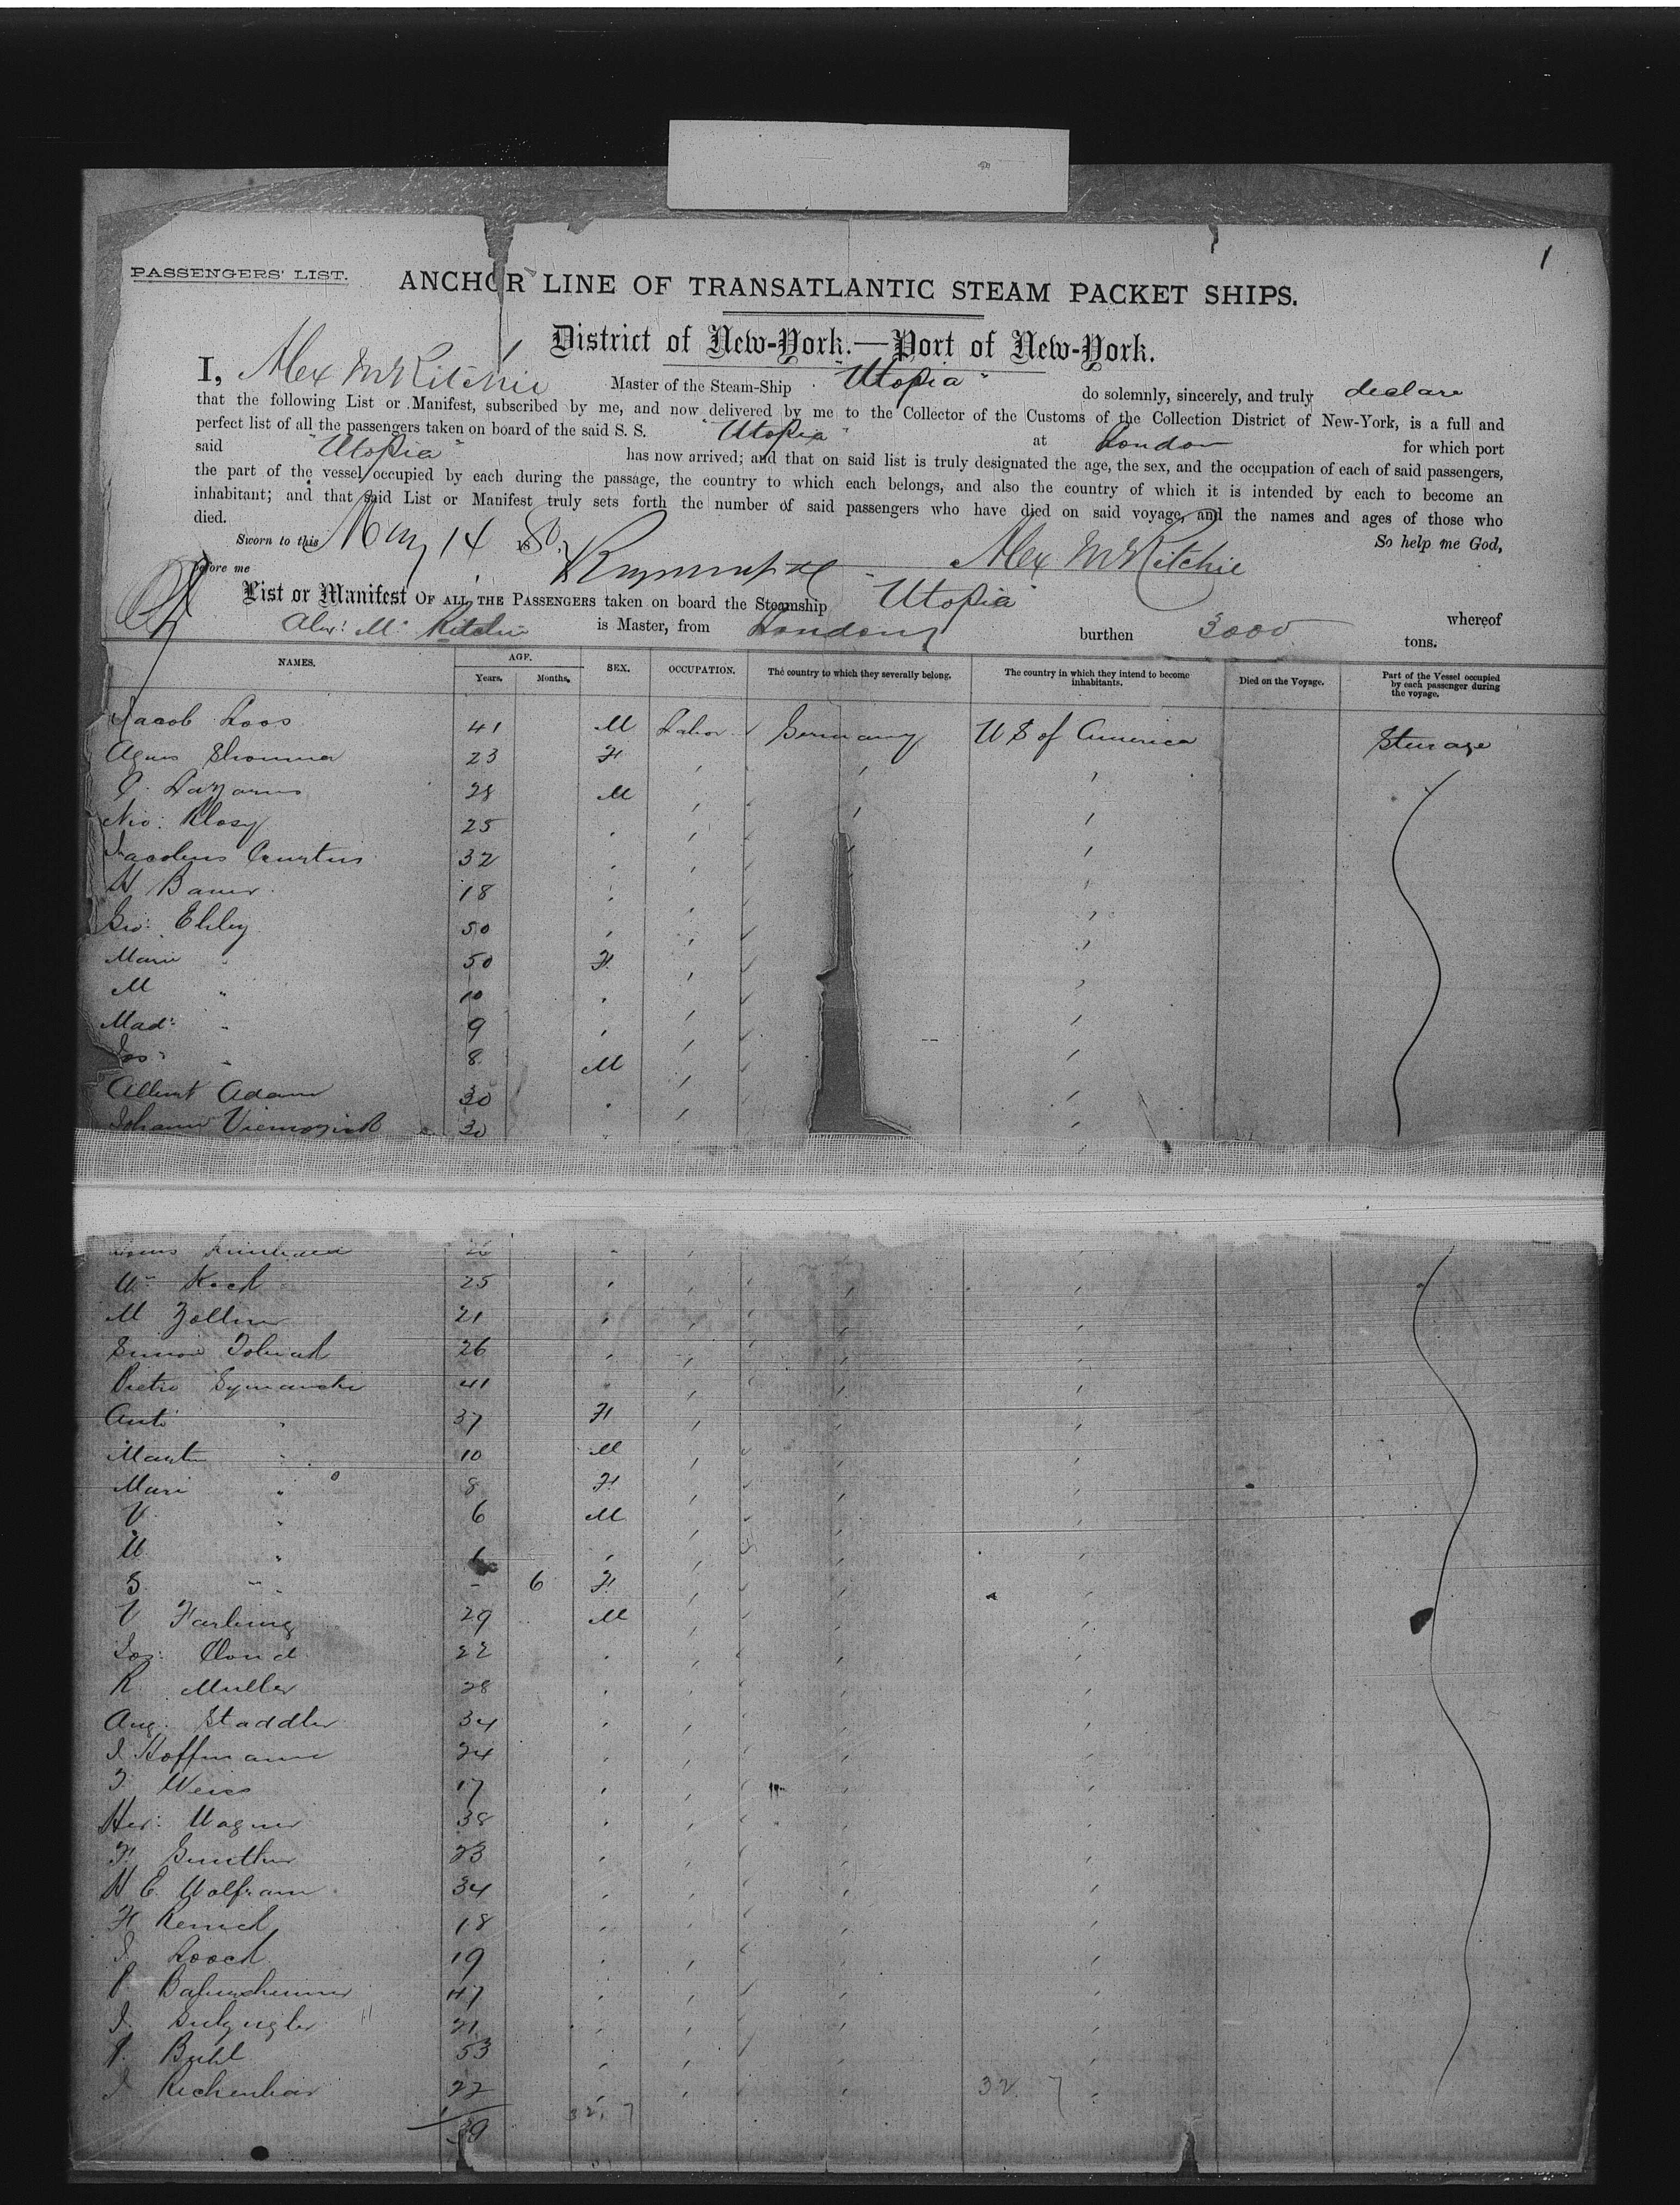 1
PASSENGERS' LIST.
ANCHOR LINE OF TRANSATLANTIC STEAM PACKET SHIPS.
District of New-York.—Port of New-York.
I, Alex McRitchie Master of the Steam-Ship "Utopia" do solemnly, sincerely, and truly declare
that the following List or Manifest, subscribed by me, and now delivered by me to the Collector of the Customs of the Collection District of New-York, is a full and
perfect list of all the passengers taken on board of the said S. S. "Utopia" at London for which port
said "Utopia" has now arrived; and that on said list is truly designated the age, the sex, and the occupation of each of said passengers,
the part of the vessel occupied by each during the passage, the country to which each belongs, and also the country of which it is intended by each to become an
inhabitant; and that said List or Manifest truly sets forth the number of said passengers who have died on said voyage, and the names and ages of those who
died. So help me God,
Sworn to this May 14 1880
before me Alex McRitchie
List or Manifest OF ALL THE PASSENGERS taken on board the Steamship "Utopia" whereof
Alexr Mc Ritchie is Master, from London burthen 3000 tons.
NAMES. AGE. Years. Months. SEX. OCCUPATION. The country to which they severally belong. The country in which they intend to become inhabitants. Died on the Voyage. Part of the Vessel occupied by each passenger during the voyage.
Jacob Loos 41 M Labor Germany U S of America Steerage
Agnes 23 F
28 M
Nic: Klasy 25
32
H Bauer 18
Geo: Ehley 50
Marie " 50 F
M " 10
Mad: " 9
Jos: " 8 M
Albert Adam 30
Johann 30
26
Wm Koch 25
M Zollner 21
Simon 26
41
37 F
Martin " 10 M
Mari " 8 F
V " 6 M
U "
S " - 6 F
V Farling 29 M
Jos: Cloud 22
R Muller 28
Aug. Staddler 34
J Hoffmann 24
J Weiss 17
Her: Wagner 38
F. Gunther 23
H C. Wolfram 34
H 18
J Loock 19
P. 47
J. 21
P. Buhl 53
J 22
32. 7
32. 7
39